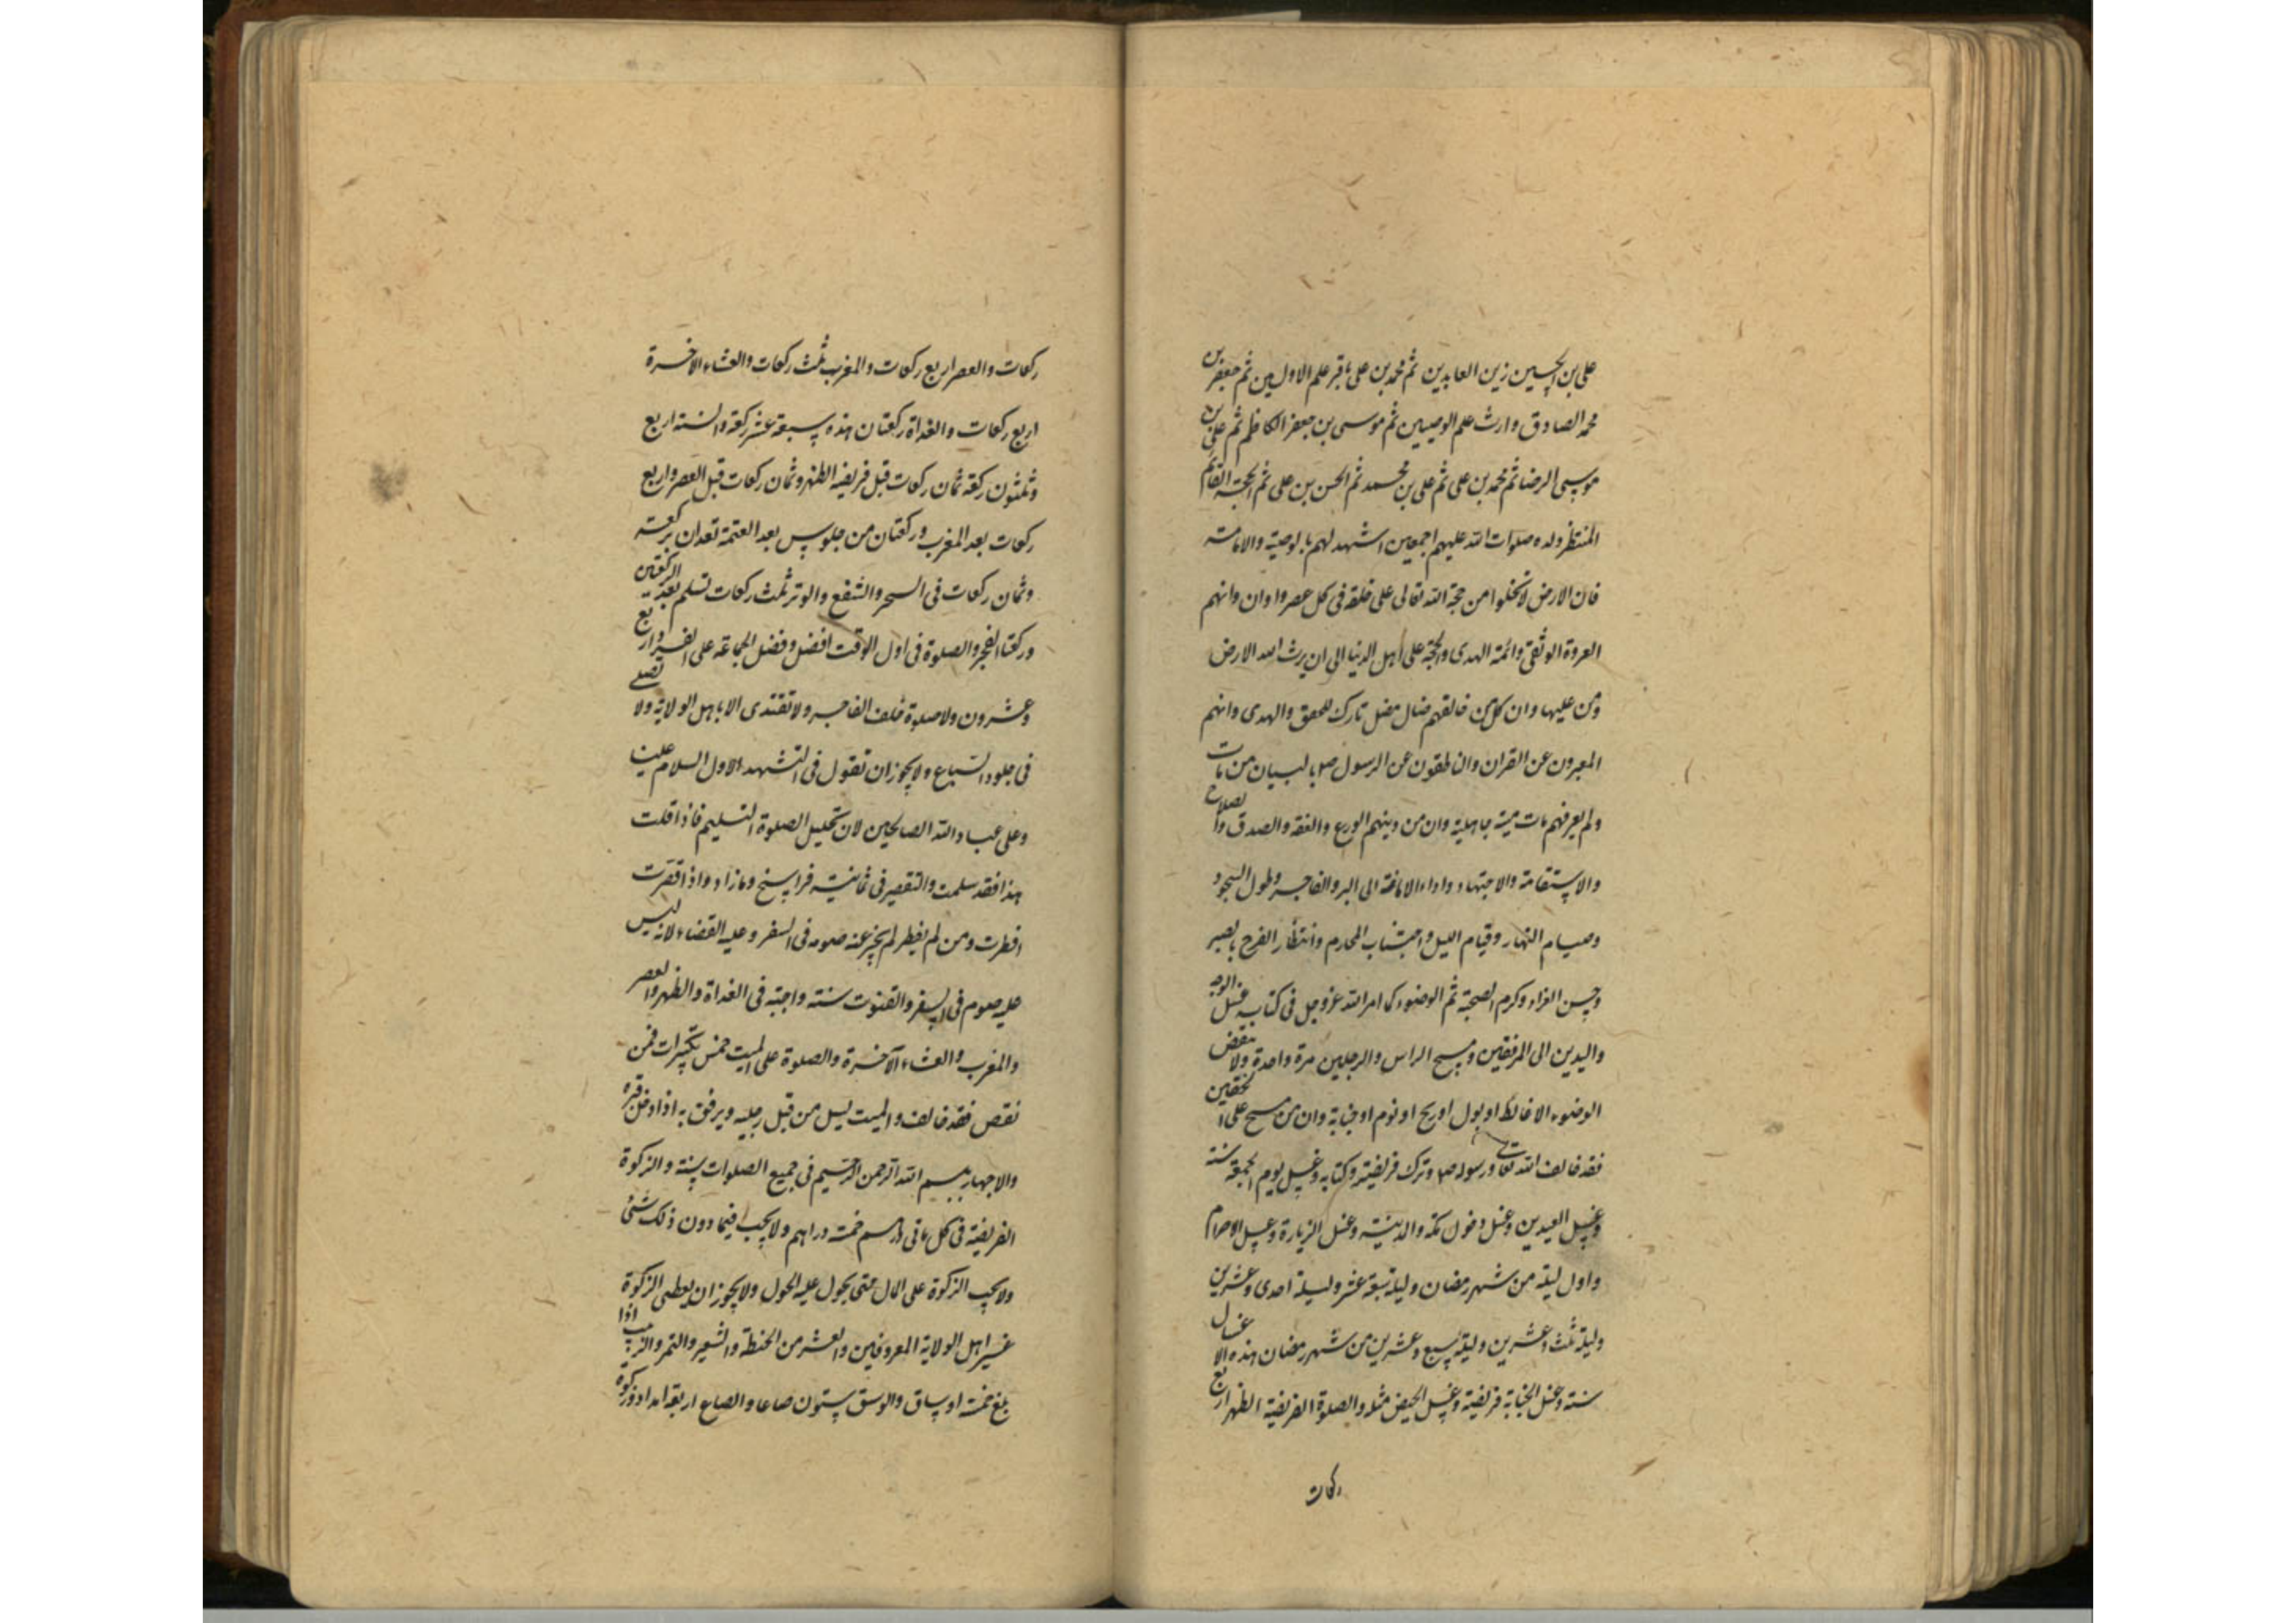 علی بن الحسین زین العابدین ثم محمد بن علی باقر علم الاولین ثم جعفر بن
محمد الصادق وارث علم الوصیین ثم موسی بن جعفر الکاظم ثم علی بن
موسی الرضا ثم محمد بن علی ثم علی بن محمد ثم الحسن بن علی ثم الحجة القائم
المنتظر ولده صلوات الله علیهم اجمعین اشهد لهم بالوصیة والامامة
فان الارض لا تخلوا من حجة الله تعالی علی خلقه فی کل عصر واوان وانهم
العروة الوثقی وائمة الهدی والحجة علی اهل الدنیا الی ان یرث الله الارض
ومن علیها وان کل من خالفهم ضال مضل تارک للحق والهدی وانهم
المعبرون عن القران والناطقون عن الرسول صم بالبیان من مات
ولم یعرفهم مات میتة جاهلیة وان من دینهم الورع والفقه والصدق والصلاح
والاستقامة والاجتهاد واداء الامانة الی البر والفاجر وطول السجود
وصیام النهار وقیام اللیل واجتناب المحارم وانتظار الفرج بالصبر
وحسن العزاء وکرم الصحبة ثم الوضوء کما امر الله عز وجل فی کتابه غسل الوجه
والیدین الی المرفقین ومسح الراس والرجلین مرة واحدة ولا ینقض
الوضوء الا غائط او بول او ریح او نوم او جنابة وان من مسح علی الخفین
فقد خالف الله تعالی ورسوله صم وترک فریضته وکتابه وغسل یوم الجمعة سنة
وغسل العیدین وغسل دخول مکة والمدینة وغسل الزیارة وغسل الاحرام
واول لیلة من شهر رمضان ولیلة سبعة عشر ولیلة احدی وعشرین
ولیلة ثلث وعشرین ولیلة سبع وعشرین من شهر رمضان هذه الاغسال
سنة وغسل الجنابة فریضة وغسل الحیض مثله والصلوة الفریضة الظهر اربع
رکعات
رکعات والعصر اربع رکعات والمغرب ثلث رکعات والعشاء الاخرة
اربع رکعات والغداة رکعتان هذه سبعة عشر رکعة والسنة اربع
وثلثون رکعة ثمان رکعات قبل فریضة الظهر وثمان رکعات قبل العصر واربع
رکعات بعد المغرب ورکعتان من جلوس بعد العتمة تعدان برکعة
وثمان رکعات فی السحر والشفع والوتر ثلث رکعات تسلم بعد الرکعتین
ورکعتا الفجر والصلوة فی اول الوقت افضل وفضل الجماعة علی الفرد اربع
وعشرون ولا صلوة خلف الفاجر ولا تقتدی الا باهل الولایة ولا تصلی
فی جلود السباع ولا یجوز ان تقول فی التشهد الاول السلام علینا
وعلی عباد الله الصالحین لان تحلیل الصلوة التسلیم فاذا قلت
هذا فقد سلمت والتقصیر فی ثمانیة فراسخ وما زاد واذا قصرت
افطرت ومن لم یفطر لم یجز عنه صومه فی السفر وعلیه القضاء لانه لیس
علیه صوم فی السفر والقنوت سنة واجبة فی الغداة والظهر والعصر
والمغرب والعشاء الآخرة والصلوة علی المیت خمس تکبیرات فمن
نقص فقد خالف والمیت یسل من قبل رجلیه ویرفق به اذا ادخل قبره
والاجهار ببسم الله الرحمن الرحیم فی جمیع الصلوات سنة والزکوة
الفریضة فی کل مائتی درهم خمسة دراهم ولا یجب فیما دون ذلک شئ
ولا یجب الزکوة علی المال حتی یحول علیه الحول ولا یجوز ان یعطی الزکوة
غیر اهل الولایة المعروفین والعشر من الحنطة والشعیر والتمر والزبیب اذا
بلغ خمسة اوساق والوسق ستون صاعا والصاع اربعة امداد وزکوة